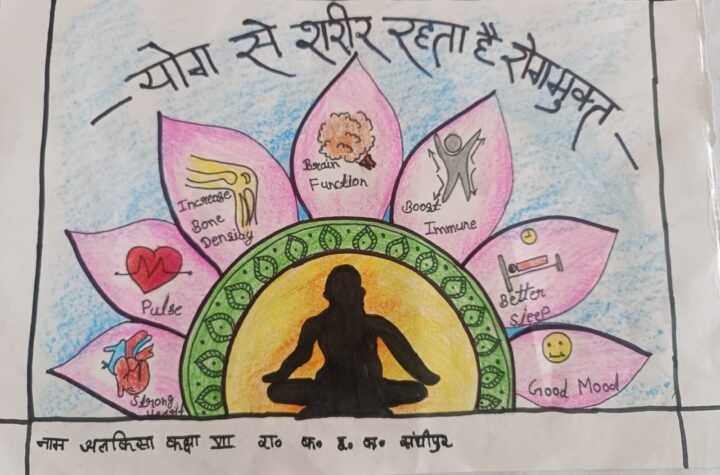 योग से शरीर रहता है रोगमुक्त
Brain
Function
Increase
Bone
Density
Boost
Immune
Pulse
Better
Sleep
Strong
Heart
Good Mood
नाम अलकिसा कक्षा VII रा० क० ह० क० संघीपुर